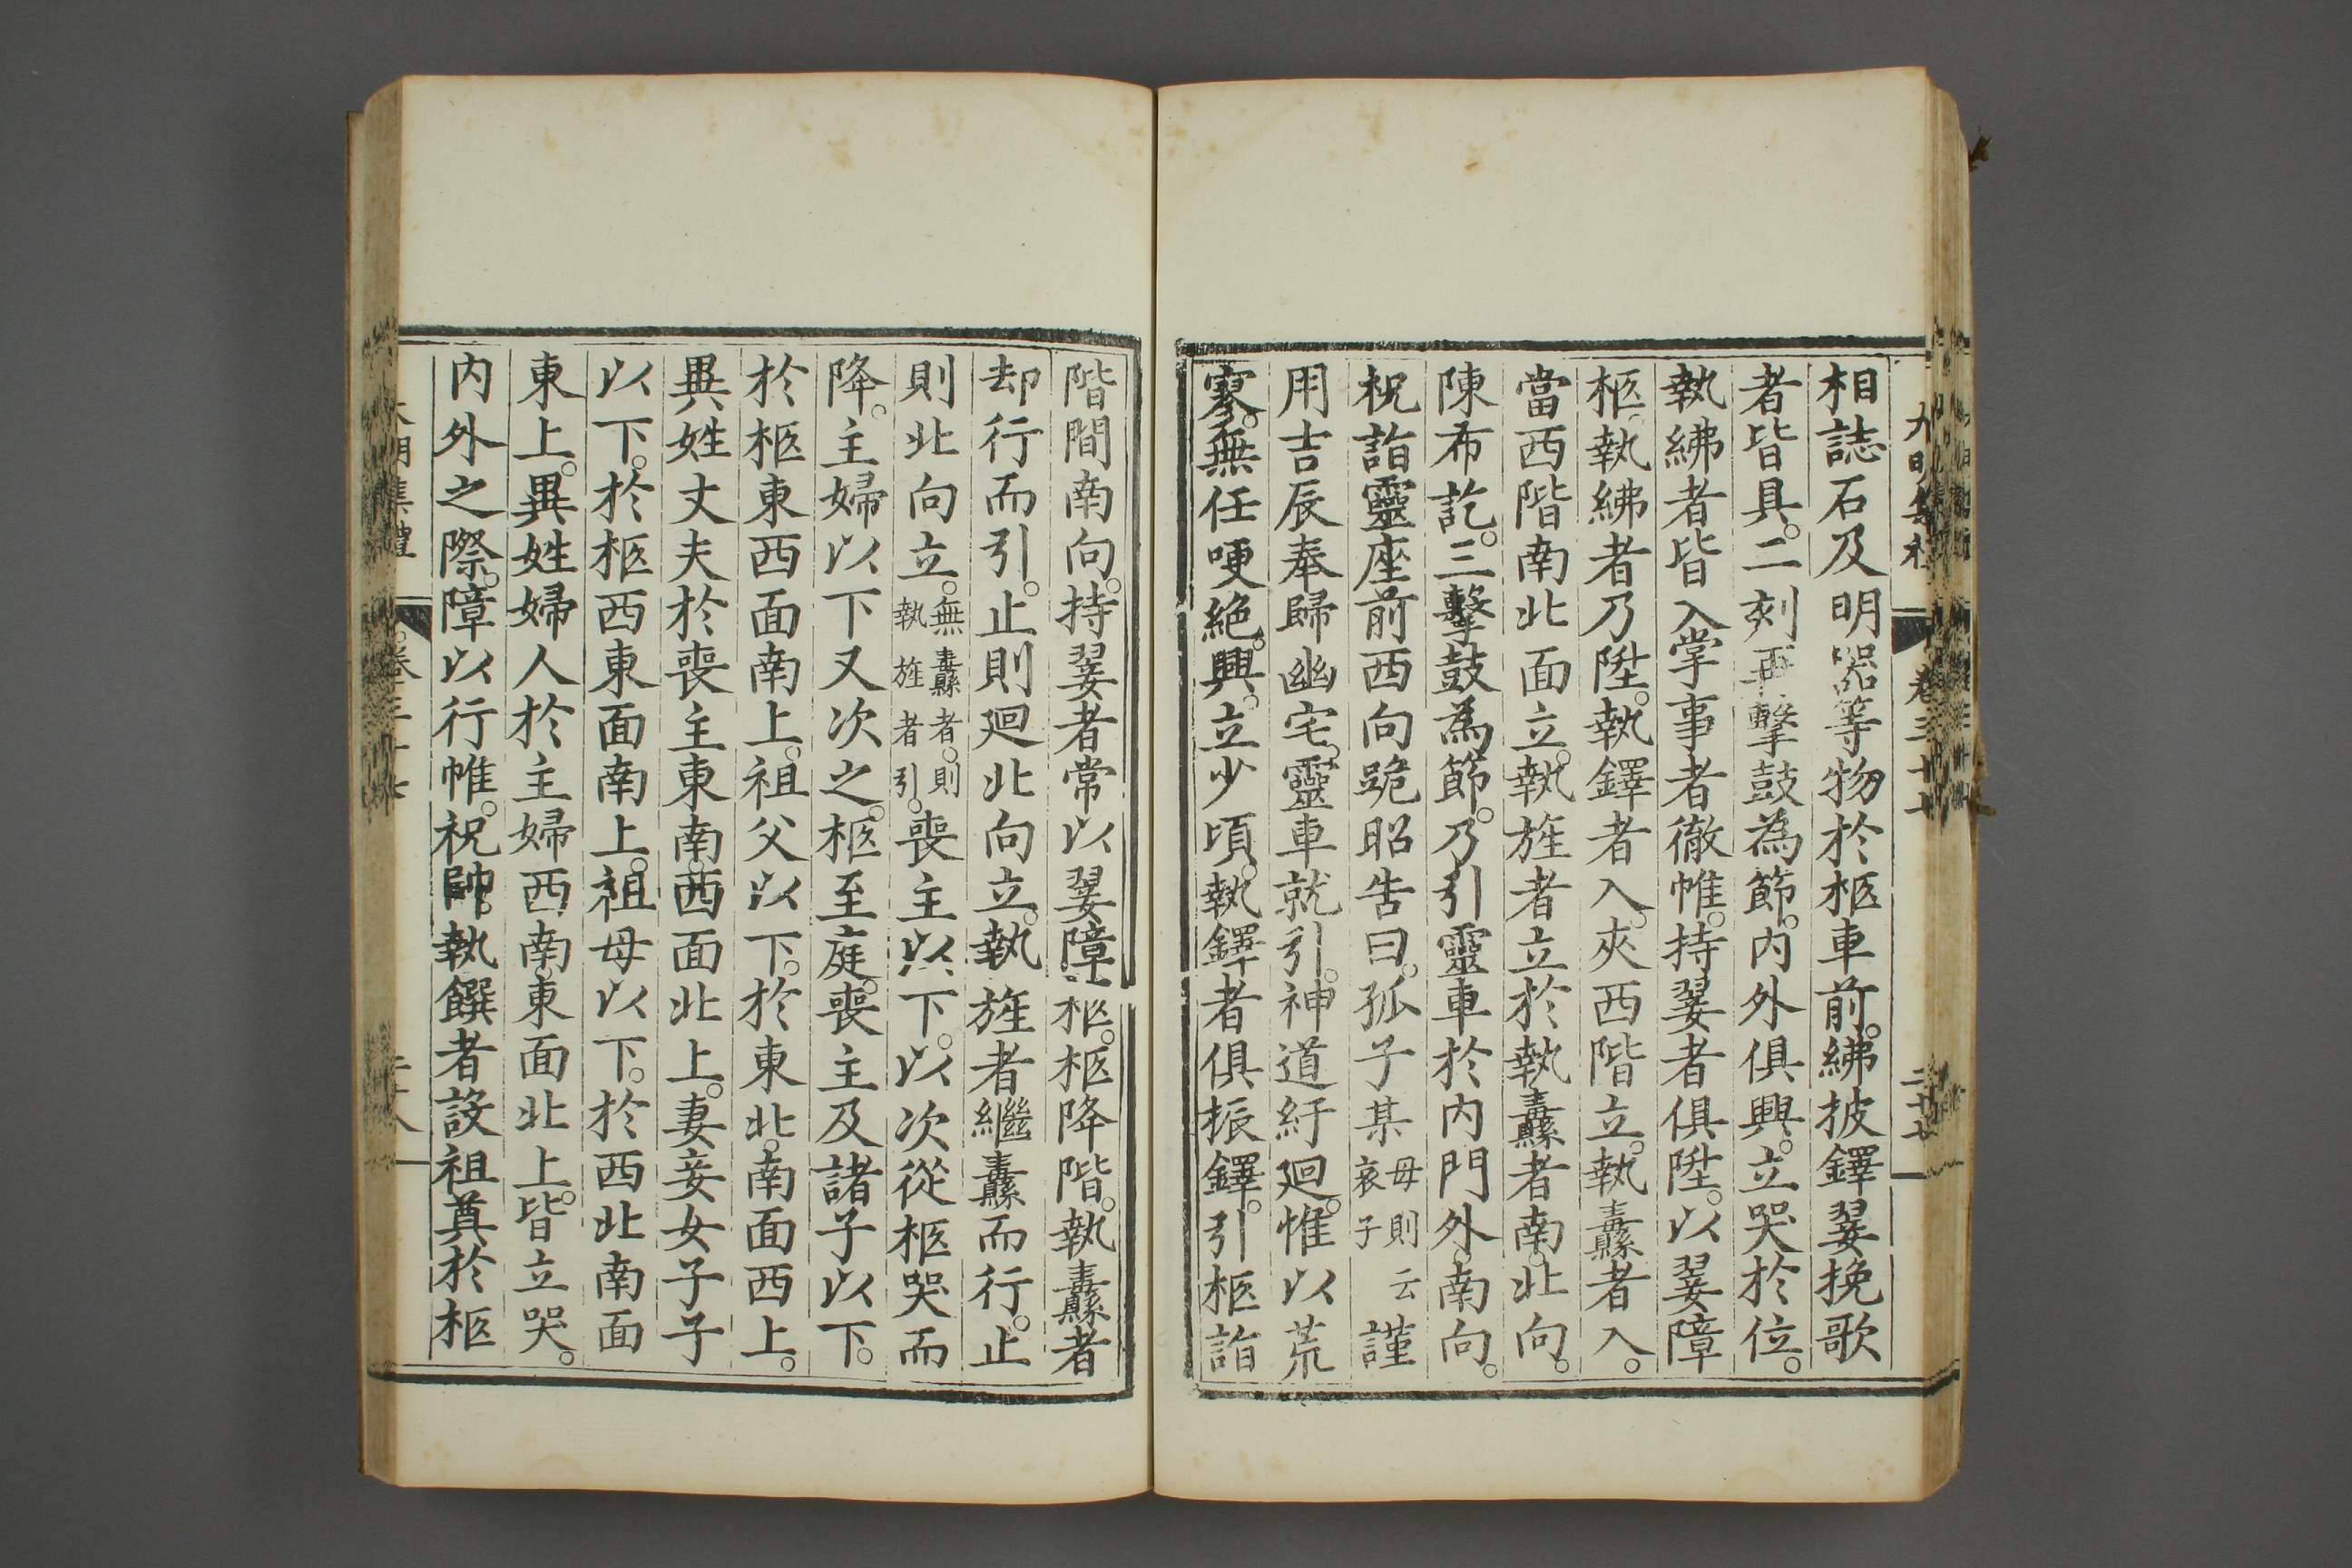 相誌石及明器等物於柩車前。紼披鐸翣挽歌
者皆具。二刻再擊鼓為節。內外俱興。立哭於位。
執紼者皆入掌事者徹帷。持翣者俱陞。以翣障
柩。執紼者乃陞。執鐸者入。夾西階立。執纛者入。
當西階南北面立。執旌者立於執纛者南。北向。
陳布訖。三擊鼓為節。乃引靈車於內門外。南向。
祝詣靈座前西向跪昭告曰。孤子某母則云哀子謹
用吉辰奉歸幽宅。靈車就引。神道紆廻。惟以荒
寥。無任哽絕。興。立少頃。執鐸者俱振鐸。引柩詣
階間南向。持翣者常以翣障柩。柩降階。執纛者
却行而引。止則廻北向立。執旌者繼纛而行。止
則北向立。無纛者。則執旌者引。喪主以下。以次從柩哭而
降。主婦以下又次之。柩至庭。喪主及諸子以下。
於柩東西面南上。祖父以下。於東北。南面西上。
異姓丈夫於喪主東南。西面北上。妻妾女子子
以下。於柩西東面南上。祖母以下。於西北南面
東上。異姓婦人於主婦西南。東面北上。皆立哭。
內外之際。障以行帷。祝帥。執饌者設祖奠於柩
大明集禮 卷三十七